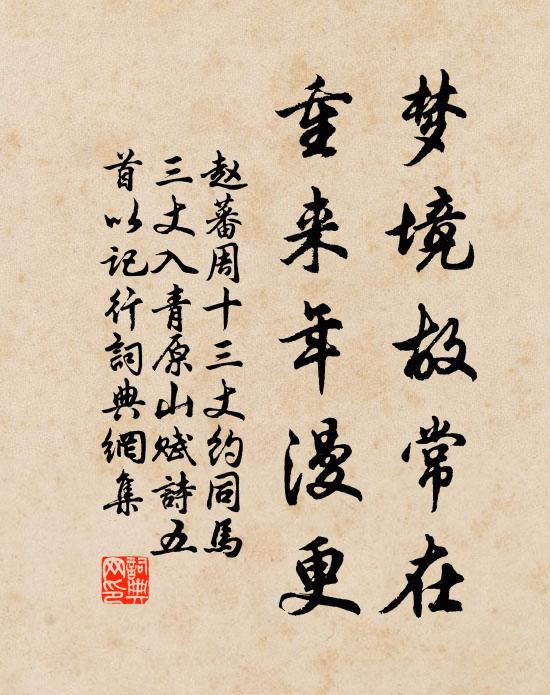 梦境故常在
重来年漫更
赵蕃周十三丈约同马
三丈入青原山赋詩五
首以记行詞典網集
詞典网印